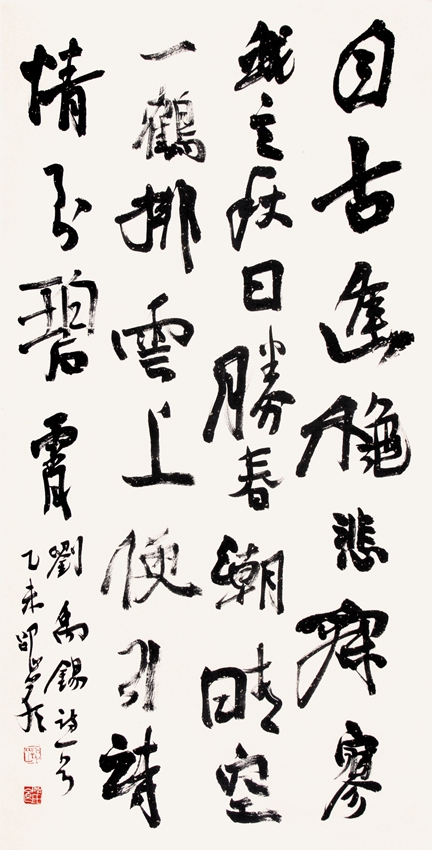 自古逢穐悲寂寥
我言秋日勝春潮晴空
一鶴排雲上便引詩
情到碧霄
劉禹錫詩一首
乙未邵